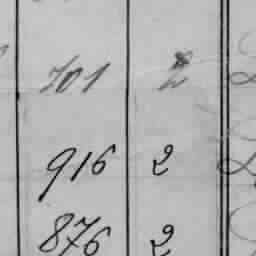 701 2
916 2
876 2